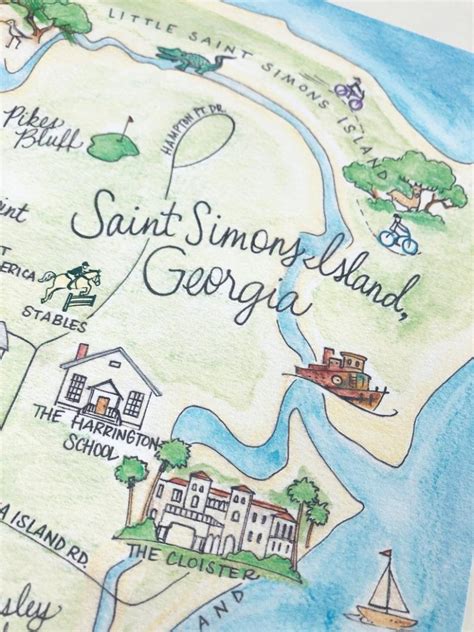 LITTLE SAINT SIMONS ISLAND
Pikes
Bluff
HAMPTON PT. DR.
Saint Simons Island,
Georgia
STABLES
THE HARRINGTON
SCHOOL
ISLAND RD.
THE CLOISTER